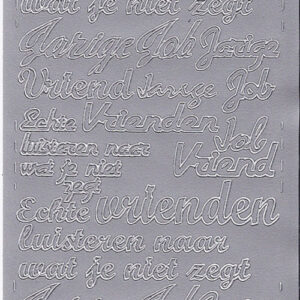 wat je niet zegt
Jarige Job Jarige
Vriend Jarige Job
Echte Vrienden Job
luisteren naar Vriend
wat je niet
zegt
Echte vrienden
luisteren naar
wat je niet zegt